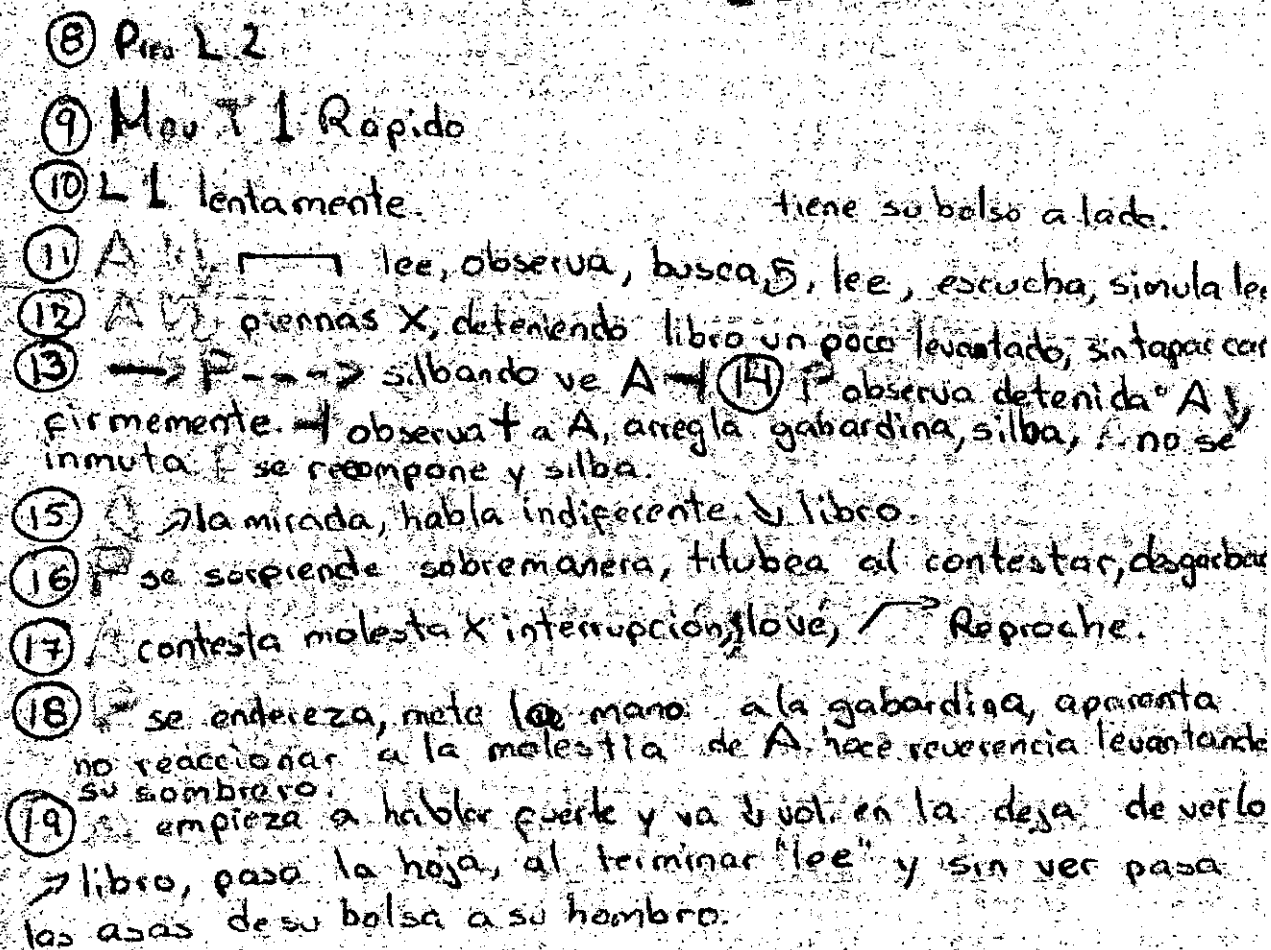 ⑧ Piro L.2
⑨ Mov T 1 Rapido
⑩ L 1 lentamente.
tiene su bolso a lado.
⑪ A lee, observa, busca, lee, escucha, simula lee
⑫ A piernas X, deteniendo libro un poco levantado, sin tapar car
⑬ → P ---> silbando ve A ⊣ ⑭ P observa detenida° A ↓,
firmemente. ⊣ observa + a A, arregla gabardina, silba, A no se
inmuta. P se recompone y silba.
⑮ ↗ la mirada, habla indiferente. ↓ libro.
⑯ P se sorprende sobremanera, titubea al contestar, desgarbad
⑰ A contesta molesta X interrupción, lo ve, Reproche.
⑱ P se endereza, mete la mano a la gabardina, aparenta
no reaccionar a la molestia de A. hace reverencia levantando
su sombrero.
⑲ empieza a hablar fuerte y va ↓ vol. en la deja de verlo
↗ libro, pasa la hoja, al terminar "lee" y sin ver pasa
las asas de su bolsa a su hombro.